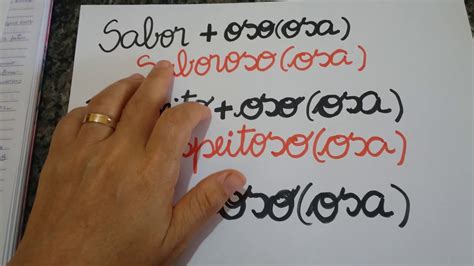 Sabor + oso(osa)
Saboroso(osa)
+ oso(osa)
peitoso(osa)
oso(osa)